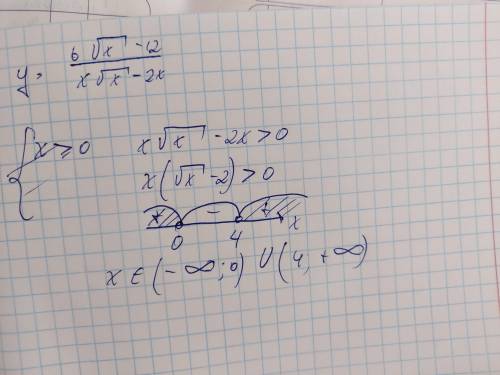 y = (6√x - 12) / (x√x - 2x)
{ x ≥ 0
x√x - 2x > 0
x(√x - 2) > 0
+ - + x
0 4
x ∈ (-∞; 0) ∪ (4, +∞)